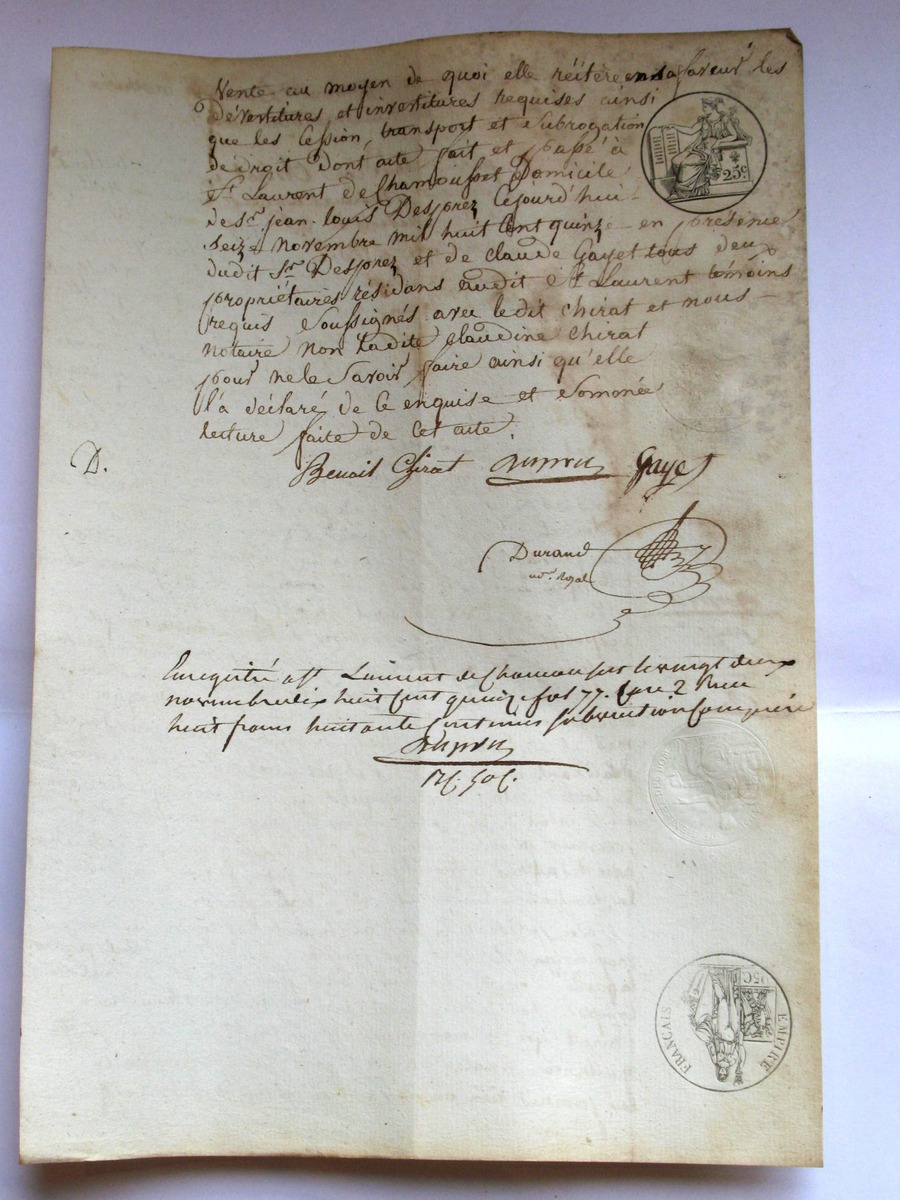 Vente au moyen de quoi elle réitère en sa faveur les
dévestitures et investitures requises ainsi
que les Cession, transport et subrogation
de droit dont acte fait et passé à
St Laurent de Chamousset Domicile
de Sr. jean-louis Desprez Cejourd'hui
seize novembre mil huit Cent quinze en présence
dudit Sr. Desprez et de claude Gayet tous deux
propriétaires résidans audit St Laurent témoins
requis soussignés avec ledit chirat et nous
notaire non ladite claudine chirat
pour ne le Savoir faire ainsi qu'elle
l'a déclaré de ce enquise et sommée
lecture faite de cet acte.
25c.
D.
Benoit Chirat Gayet
Durand
not. Royal
Enregistré a St Laurent de Chamousset le vingt deux
novembre dix huit Cent quinze fol 77. 2 Recu
huit francs huitante Centimes subvention Comprise
EMPIRE FRANÇAIS